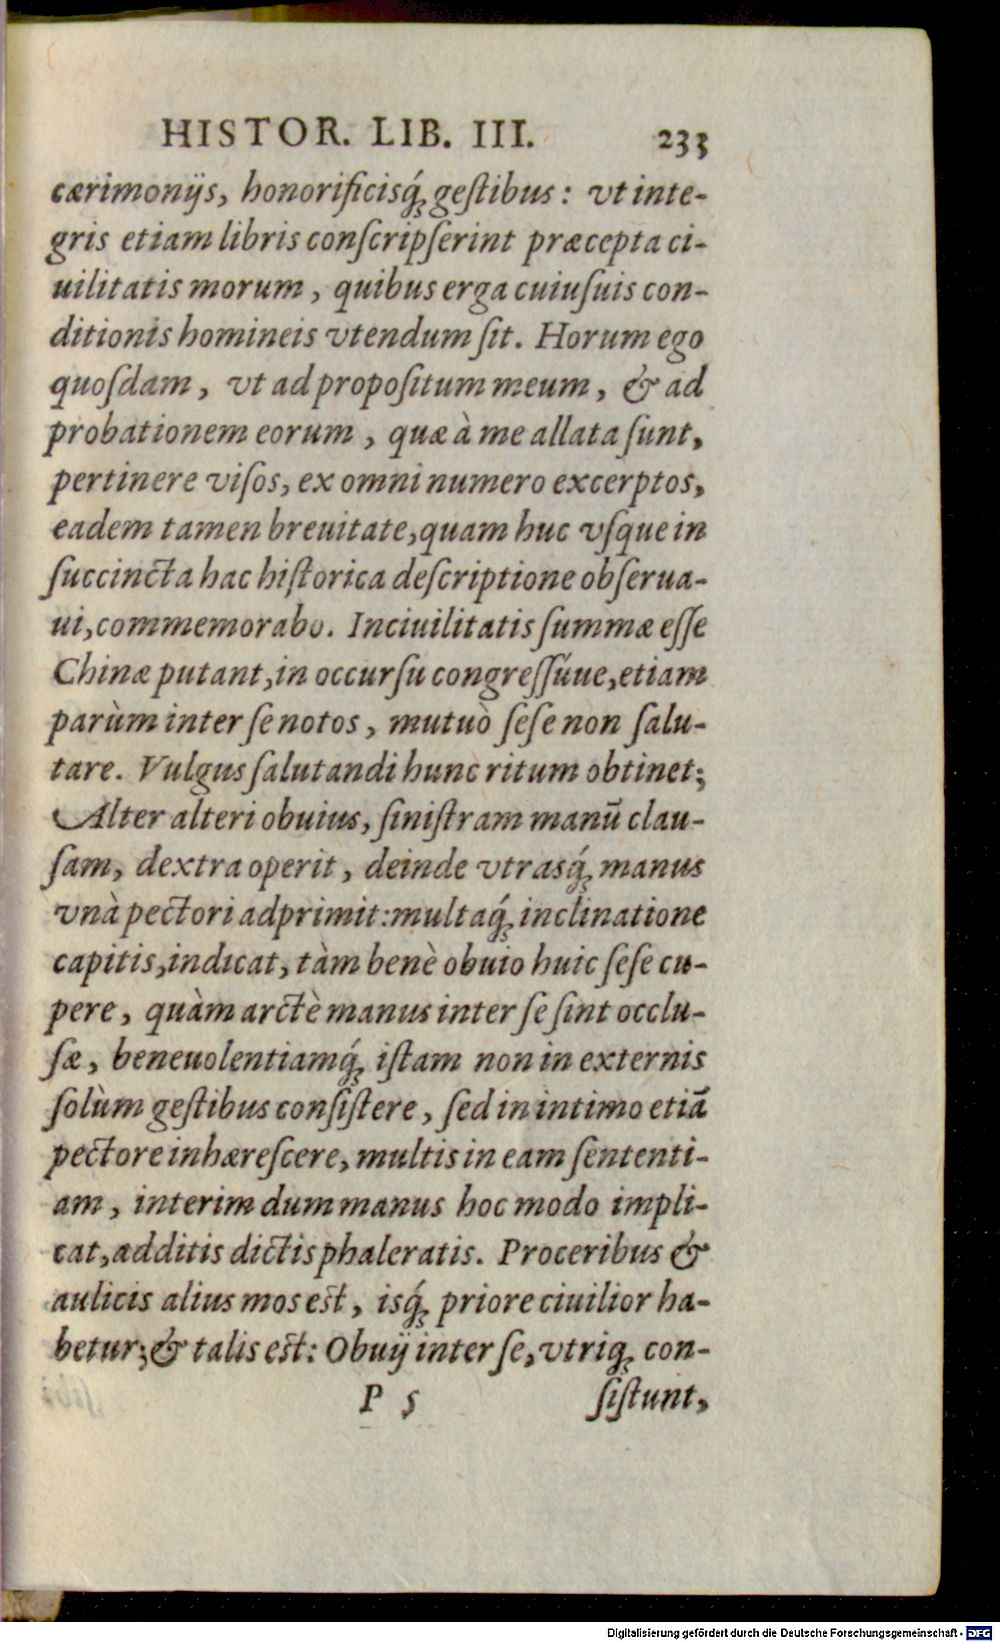 HISTOR. LIB. III. 233
cærimonijs, honorificisq́; gestibus: vt inte-
gris etiam libris conſcripſerint præcepta ci-
uilitatis morum, quibus erga cuiuſuis con-
ditionis homineis vtendum ſit. Horum ego
quoſdam, vt ad propoſitum meum, & ad
probationem eorum, quæ à me allata ſunt,
pertinere viſos, ex omni numero excerptos,
eadem tamen breuitate, quam huc vſque in
ſuccincta hac hiſtorica deſcriptione obſerua-
ui, commemorabo. Inciuilitatis ſummæ eſſe
Chinæ putant, in occurſu congreſſúue, etiam
parùm inter ſe notos, mutuò ſeſe non ſalu-
tare. Vulgus ſalutandi hunc ritum obtinet;
Alter alteri obuius, ſiniſtram manū clau-
ſam, dextra operit, deinde vtrasq́; manus
vnà pectori adprimit: multaq́; inclinatione
capitis, indicat, tàm benè obuio huic ſeſe cu-
pere, quàm arctè manus inter ſe ſint occlu-
ſæ, beneuolentiamq́; iſtam non in externis
ſolùm geſtibus conſiſtere, ſed in intimo etiā
pectore inhæreſcere, multis in eam ſententi-
am, interim dum manus hoc modo impli-
cat, additis dictis phaleratis. Proceribus &
aulicis alius mos est, isq́; priore ciuilior ha-
betur; & talis est: Obuij inter ſe, vtriq; con-
P 5 ſiſtunt,
Digitalisierung gefördert durch die Deutsche Forschungsgemeinschaft - DFG